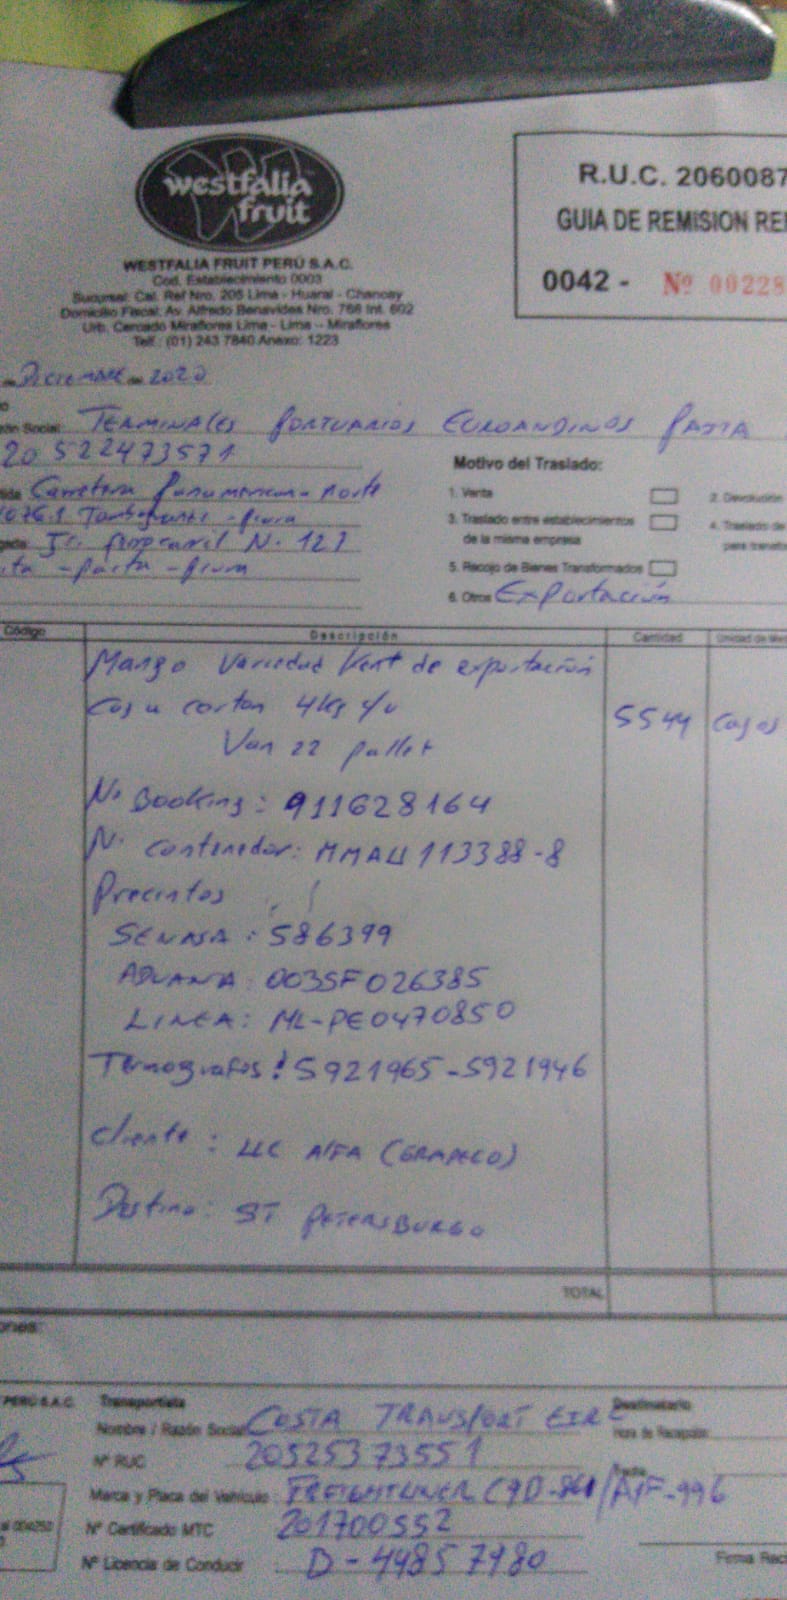 westfalia
fruit
R.U.C. 2060087
GUIA DE REMISION RE
0042 - Nº 00228
WESTFALIA FRUIT PERÚ S.A.C.
Cod. Establecimiento 0003
Sucursal: Cal. Ref Nro. 205 Lima - Huaral - Chancay
Domicilio Fiscal: Av. Alfredo Benavides Nro. 768 Int. 602
Urb. Cercado Miraflores Lima - Lima - Miraflores
Telf.: (01) 243 7840 Anexo: 1223
Diciembre de 2020
Social: Terminales Portuarios Euroandinos Paita
20522473571
Motivo del Traslado:
Carretera Panamericana norte
1. Venta
2. Devolución
Tambogrande - Piura
3. Traslado entre establecimientos
de la misma empresa
4. Traslado de
para transfo
Jr. ferrocarril N. 127
5. Recojo de Bienes Transformados
- Paita - Piura
6. Otros Exportación
Código
Descripción
Cantidad
Unidad de Me
Mango Variedad Kent de exportación
Caja carton 4kg c/u
5544 cajas
Van 22 pallet
Nº Booking: 911628164
N. contenedor: MMAU 113388-8
Precintos
SENASA: 586399
ADUANA: 003SF026385
LINEA: ML-PE0470850
Termografos: 5921965-5921946
cliente: LLC AlFA (GRAPECO)
Destino: ST PETERSBURGO
TOTAL
ones:
PERÚ S.A.C.
Transportista
Destinatario
Nombre / Razón Social COSTA TRANSPORT EIRL
Hora de Recepción
Nº RUC 20525373551
Fecha
Marca y Placa del Vehículo: FREIGHTLINER
Nº Certificado MTC 201700552
Nº Licencia de Conducir D-44857980
Firma Rec